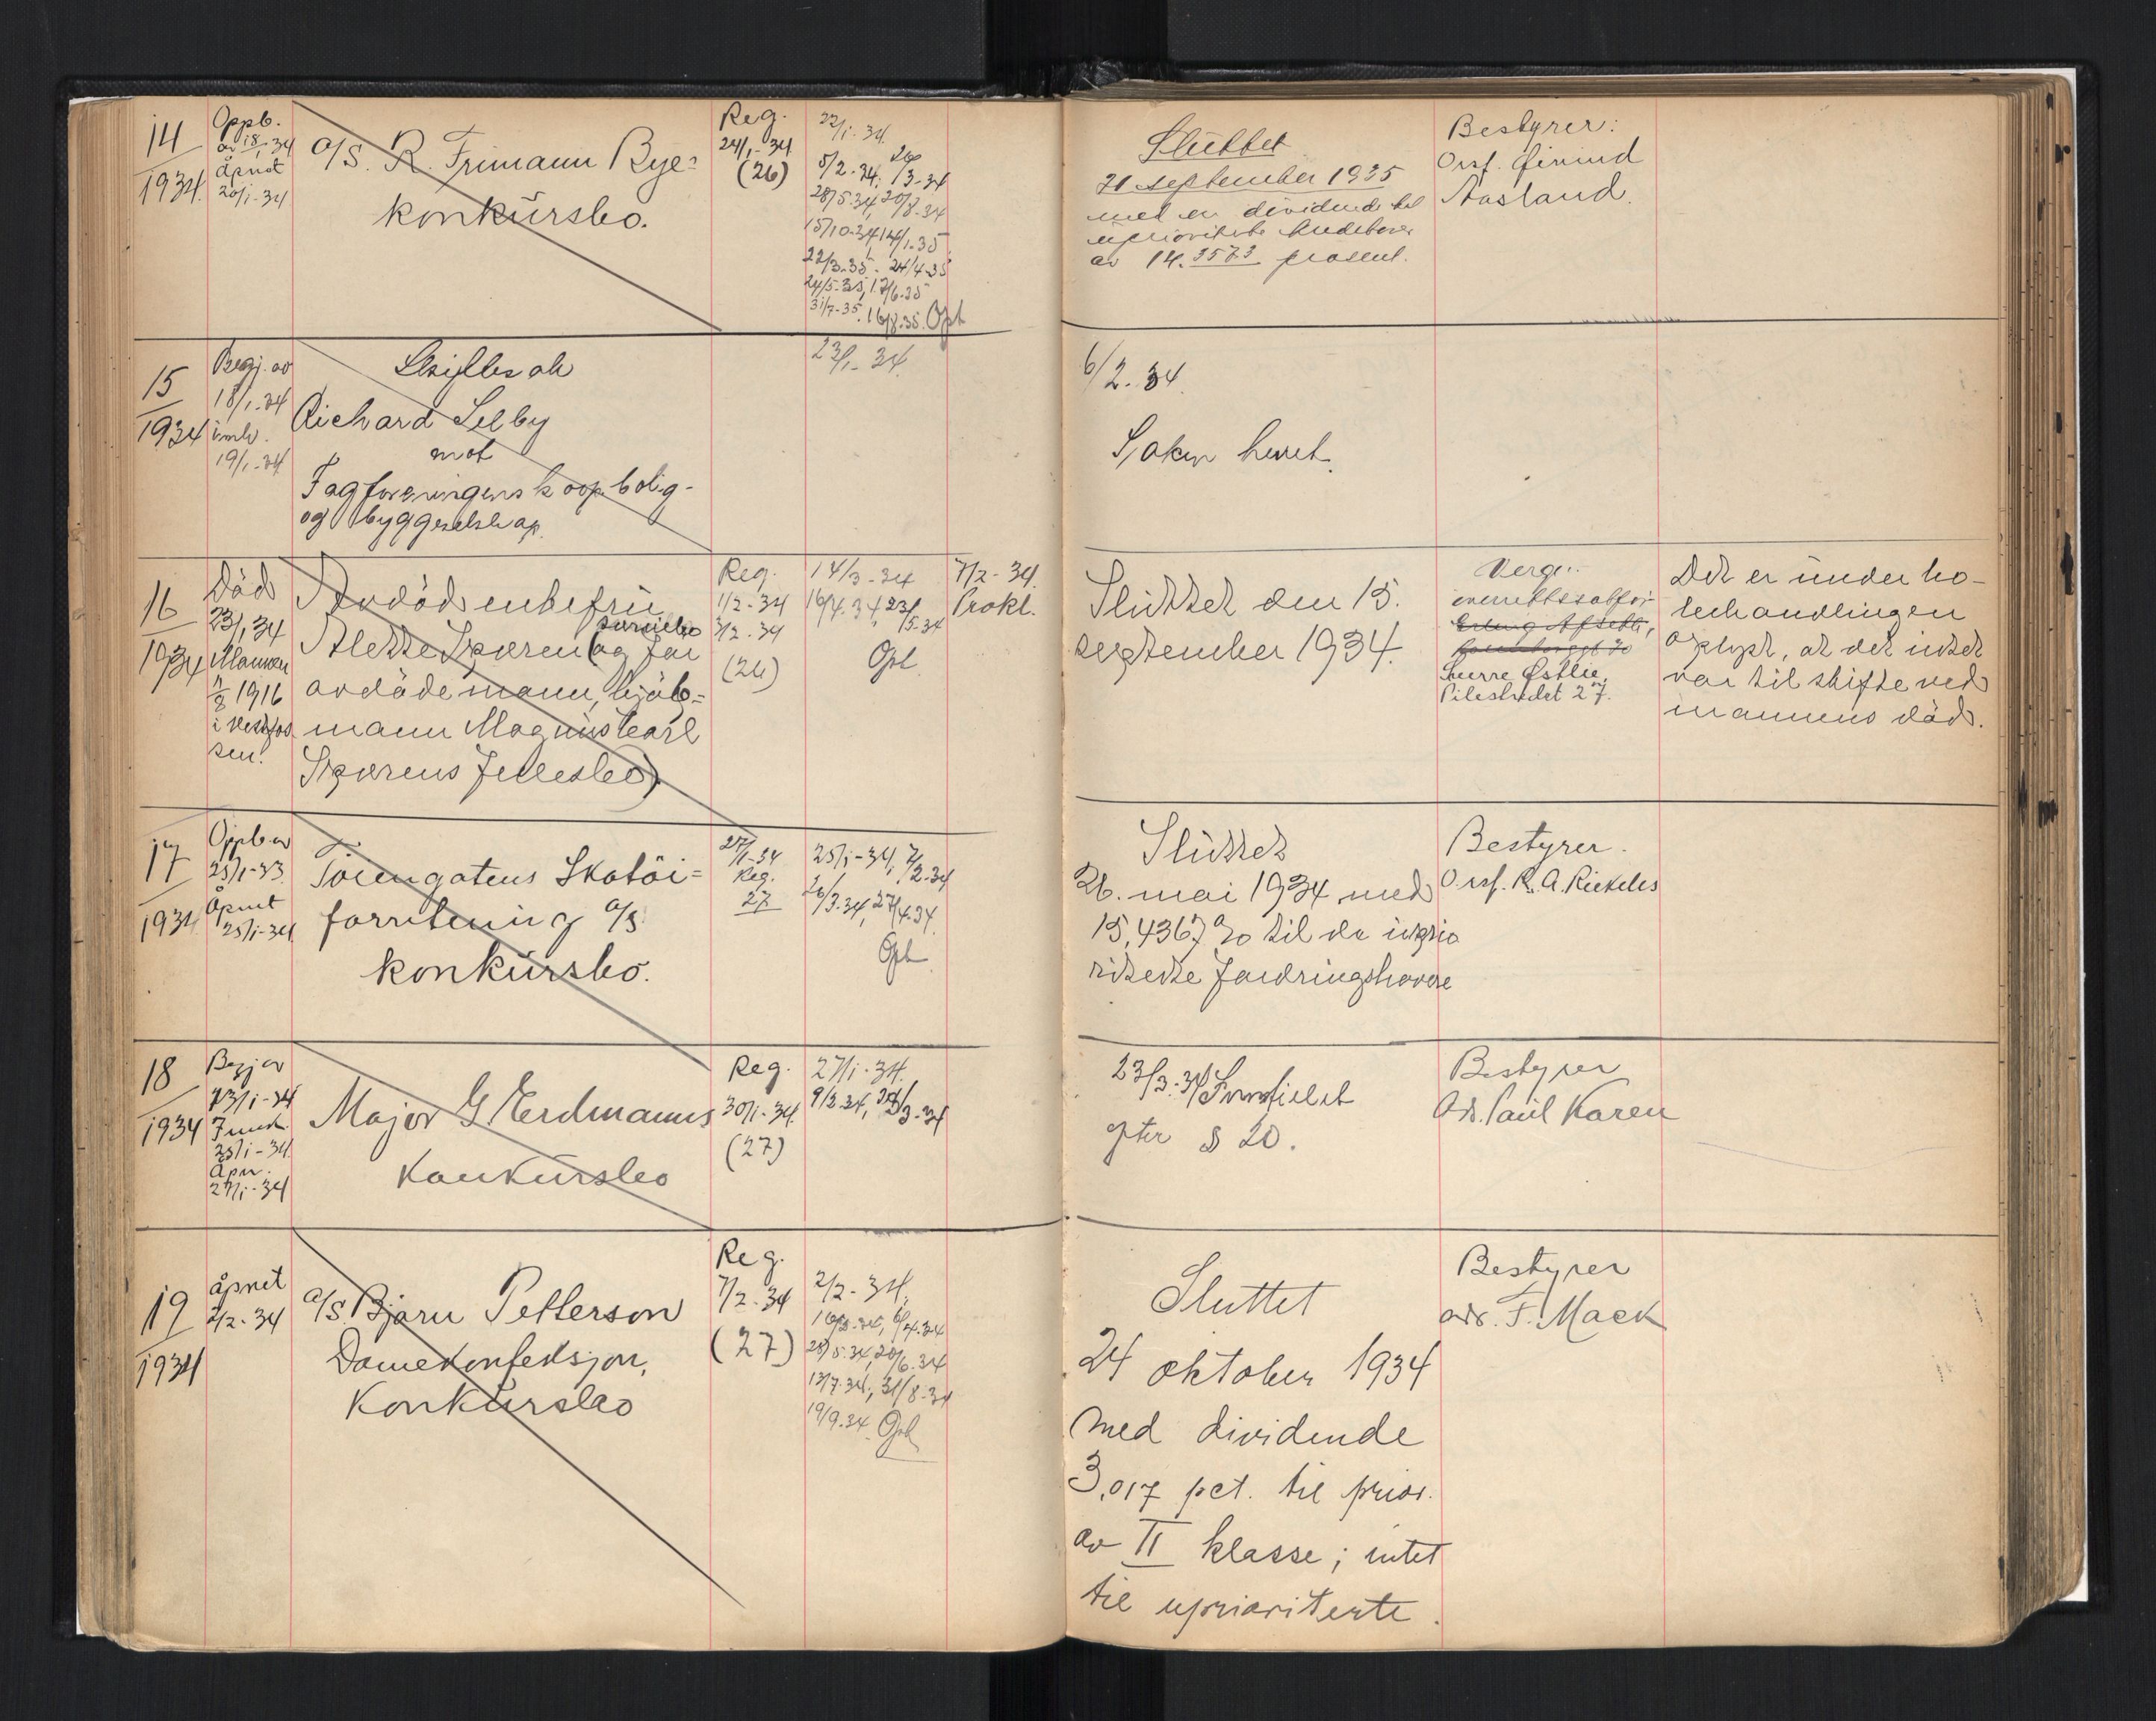 14
1934.
Oppb.
av 18/1 34
Åpnet
20/1-34
a/s. R. Frimann Bye=
konkursbo.
Reg.
24/1-34.
(26)
22/1-34.
5/2-34,
/3-34
28/5-34,
15/10-34, 14/1-35
22/3-35. 24/4-35
24/5-35, 17/6-35
31/7-35. 16/8.35. Opt
Sluttet
21 september 1935
med en dividende til
uprioriterte kreditorer
av 14.3573 prosent.
Bestyrer:
Orsf. Eivind
Aasland.
15
1934
Begj. av
18/1-34
innk.
19/1-34
Skiftesak
Richard Selby
mot
Fagforeningens koop. bolig-
og byggeselskap.
23/1-34.
6/2-34.
Saken hevet.
16
1934
Död
23/1 34
Mannen
1916
i Vestfos-
sen.
Avdöd enkefru
Alette Sporen
(og før
avdöde mann,
mann Magnus Carl
Sporens fellesbo)
Reg.
1/2-34
7/2-34
(26)
14/3-34
16/4.34, 23/5-34
Opt.
7/2-34.
Prokl.
Sluttet den 15.
september 1934.
Verge:
overrettssakfør
Sverre Østlie,
Pilestredet 27.
Det er under bo-
behandlingen
oplyst, at det intet
var til skifte ved
mannens död.
17
1934
Oppb. av
25/1-33.
Åpnet
25/1-34.
Töiengatens Skotöi=
forretning a/s
konkursbo.
27/1-34
Reg.
27
25/1-34, 7/2-34
26/3.34, 27/4-34.
Opt.
Sluttet
26. mai 1934 med
15,4367 % til de uprio
riterte fordringshavere
Bestyrer.
O.rsf. R. A. Rickeles
18
1934
Begj av
23/1-34
Funk.
25/1-34.
Åpn.
27/1-34
Major G Erdmanns
Konkursbo
Reg.
30/1-34.
(27)
27/1-34.
9/2-34, /3-34
23/3.34 Innstilet
etter § 20.
Bestyrer
Adv. Paul Karen
19
1934
åpnet
2/2-34
a/s. Bjørn Petterson
Damekonfeksjon,
Konkursbo
Reg.
7/2-34
(27)
2/2-34.
16/3-34, 6/4.34
28/5.34, 20/6.34
13/7.34, 31/8-34
19/9.34. Opt
Sluttet
24 oktober 1934
med dividende
3,017 pct. til prior.
av II klasse; intet
til uprioriterte.
Bestyrer
adv. F. Mack